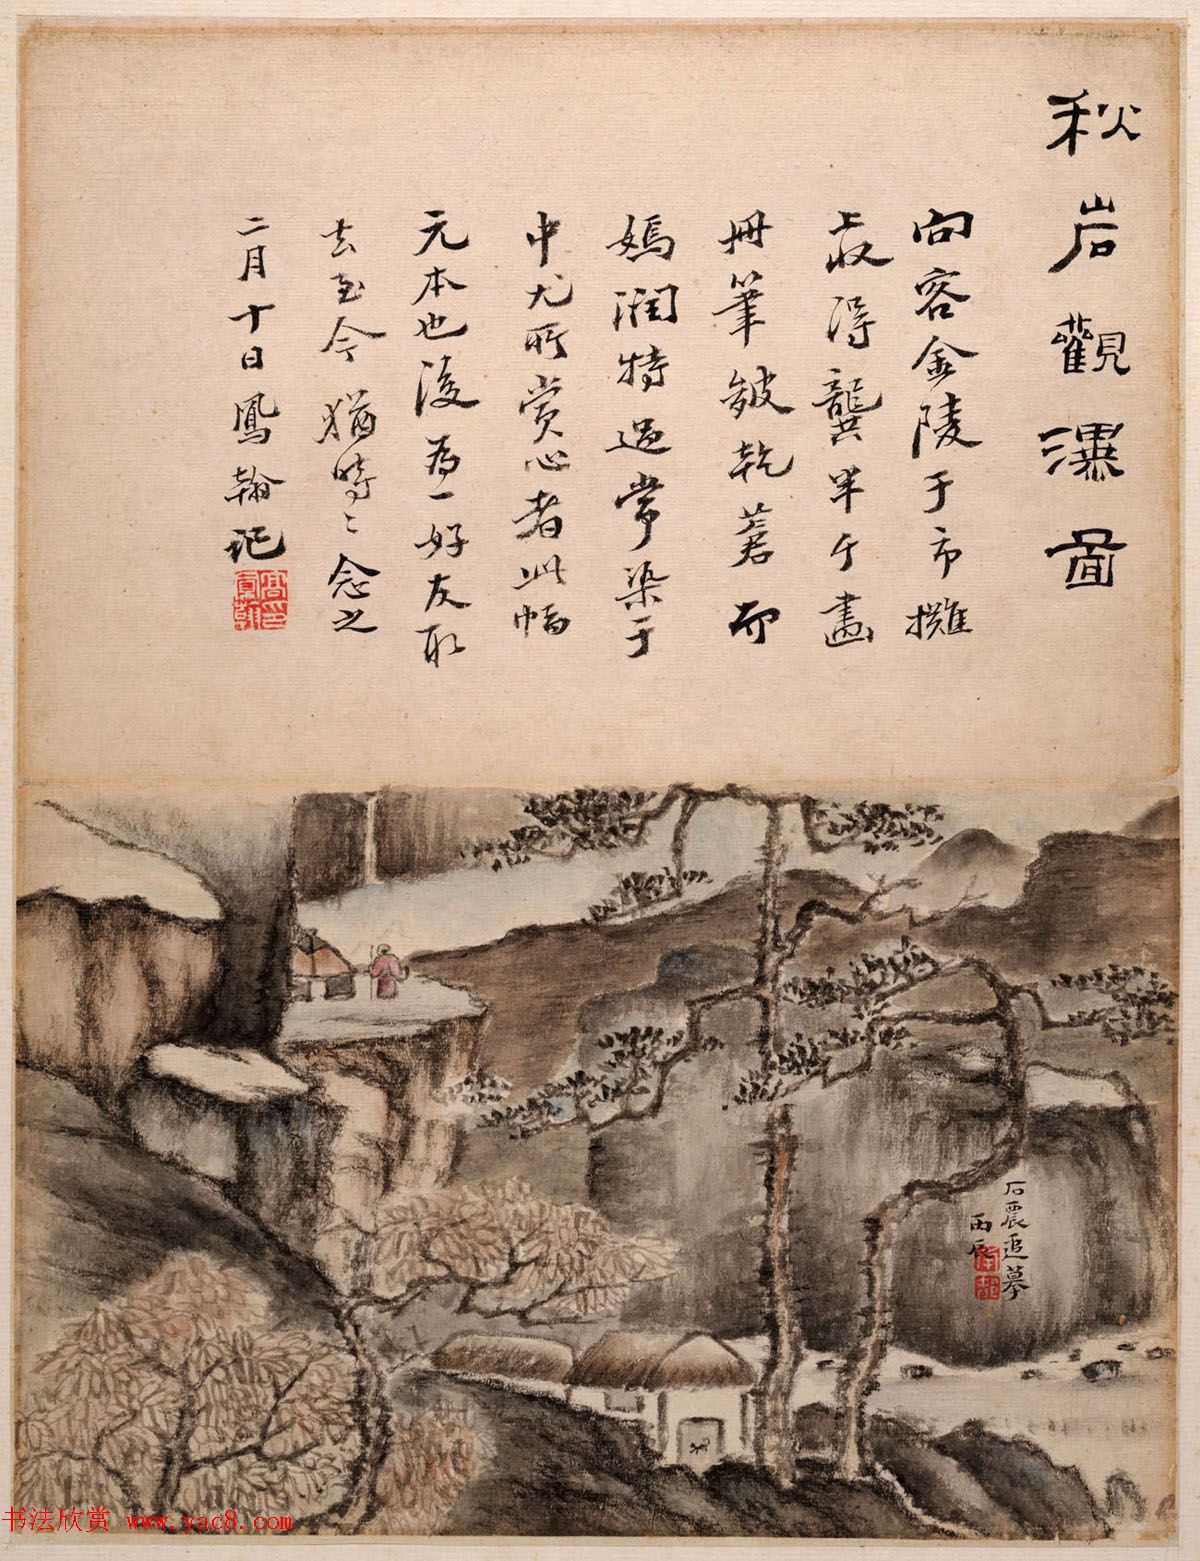 秋岩觀瀑圖
向客金陵于市攤
上收得龔半千畫
冊筆皴乾蒼而
嫣潤特過常染于
中尤所賞心者此幅
元本也後為一好友取
去至今猶時〻念之
二月十日鳳翰記
石震追摹
丙辰
书法欣赏 www.yac8.com